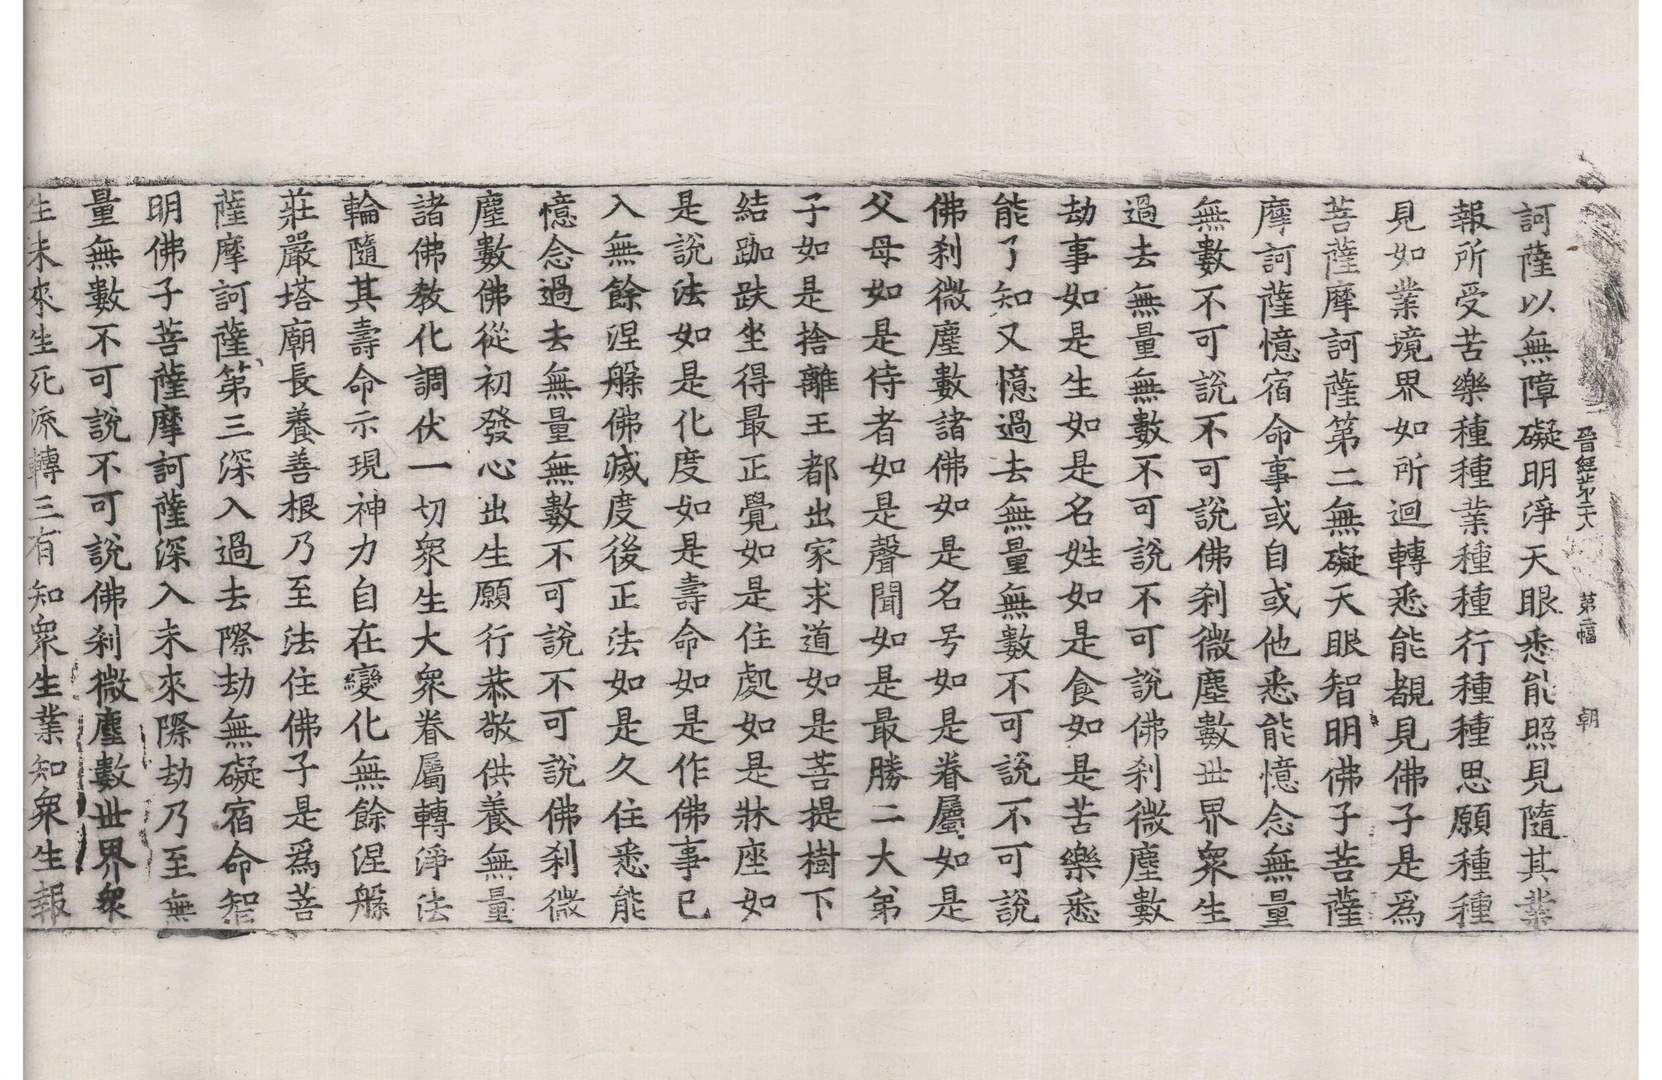 晉經第二十八 第二幅 朝
訶薩以無障礙明淨天眼悉能照見隨其業
報所受苦樂種種業種種行種種思願種種
見如業境界如所迴轉悉能覩見佛子是爲
菩薩摩訶薩第二無礙天眼智明佛子菩薩
摩訶薩憶宿命事或自或他悉能憶念無量
無數不可說不可說佛刹微塵數世界衆生
過去無量無數不可說不可說佛刹微塵數
劫事如是生如是名姓如是食如是苦樂悉
能了知又憶過去無量無數不可說不可說
佛刹微塵數諸佛如是名号如是眷屬如是
父母如是侍者如是聲聞如是最勝二大弟
子如是捨離王都出家求道如是菩提樹下
結跏趺坐得最正覺如是住處如是牀座如
是說法如是化度如是壽命如是作佛事已
入無餘涅槃佛滅度後正法如是久住悉能
憶念過去無量無數不可說不可說佛刹微
塵數佛從初發心出生願行恭敬供養無量
諸佛教化調伏一切衆生大衆眷屬轉淨法
輪隨其壽命示現神力自在變化無餘涅槃
莊嚴塔廟長養善根乃至法住佛子是爲菩
薩摩訶薩第三深入過去際劫無礙宿命智
明佛子菩薩摩訶薩深入未來際劫乃至無
量無數不可說不可說佛刹微塵數世界衆
生未來生死流轉三有知衆生業知衆生報